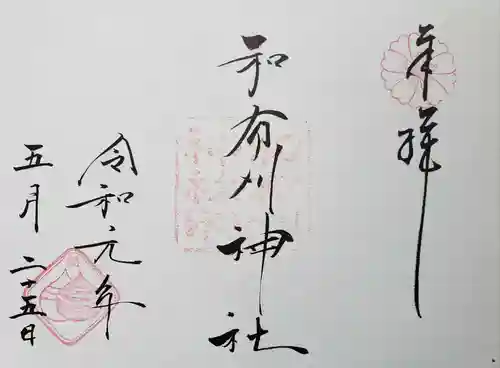 奉拝
和有川神社
令和元年
五月二十五日